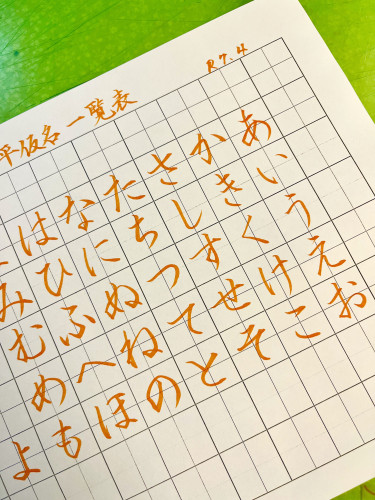 平仮名 一覧表
R7.4
あいうえお
かきくけこ
さしすせそ
たちつてと
なにぬねの
はひふへほ
みむめも
よ